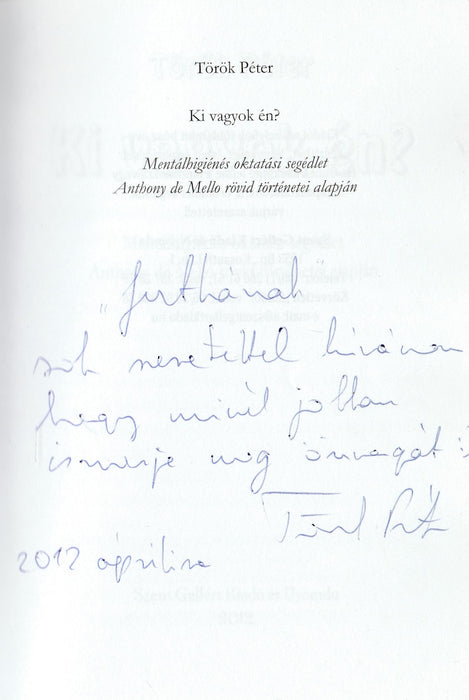 Török Péter
Ki vagyok én?
Mentálhigiénés oktatási segédlet
Anthony de Mello rövid történetei alapján
"Jutkának"
sok szeretettel kívánom
hogy minél jobban
ismerje meg önmagát!
Török Péter
2012 április